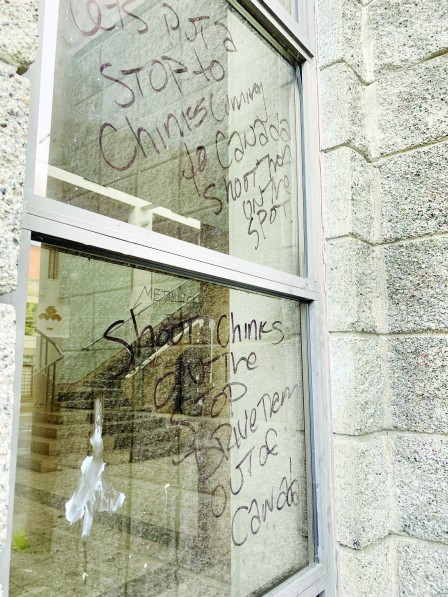 LETS PUT A
STOP to
Chinks Coming
to Canada
Shoot them
ON THE
SPOT
METRO
Shoot Chinks
ON The
SPOT
DRIVE Them
OUT OF
Canada